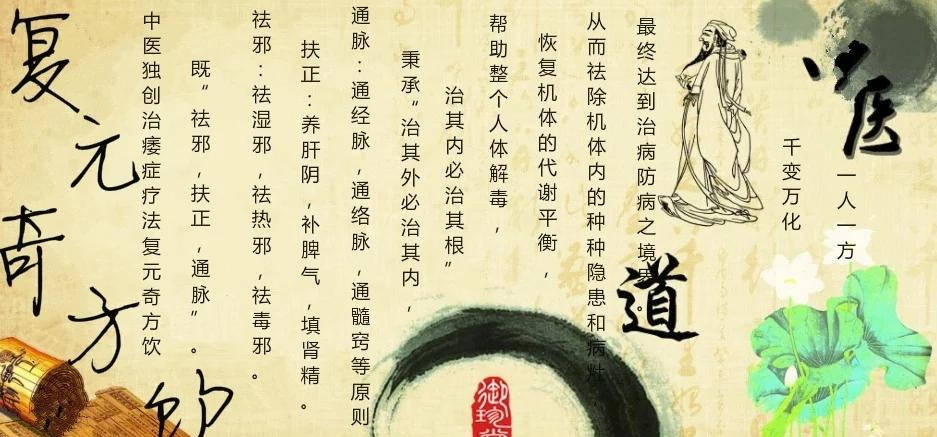 复元奇方饮
中医独创治痿症疗法复元奇方饮
既“祛邪,扶正,通脉”。
祛邪:祛湿邪,祛热邪,祛毒邪。
扶正:养肝阴,补脾气,填肾精。
通脉:通经脉,通络脉,通髓窍等原则
秉承“治其外必治其内,
治其内必治其根”
帮助整个人体解毒,
恢复机体的代谢平衡,
从而祛除机体内的种种隐患和病灶
最终达到治病防病之境界。
道
千变万化
一人一方
医
御珍